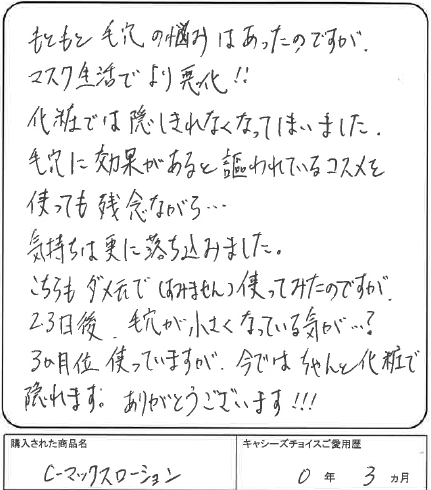 もともと毛穴の悩みはあったのですが、
マスク生活でより悪化!!
化粧では隠しきれなくなってしまいました。
毛穴に効果があると謳われているコスメを
使っても残念ながら…
気持ちは更に落ち込みました。
こちらもダメ元で(すみません)使ってみたのですが、
2.3日後、毛穴が小さくなっている気が…?
3か月位使っていますが、今ではちゃんと化粧で
隠れます。ありがとうございます!!!
購入された商品名
C-マックスローション
キャシーズチョイスご愛用歴
0年 3ヵ月